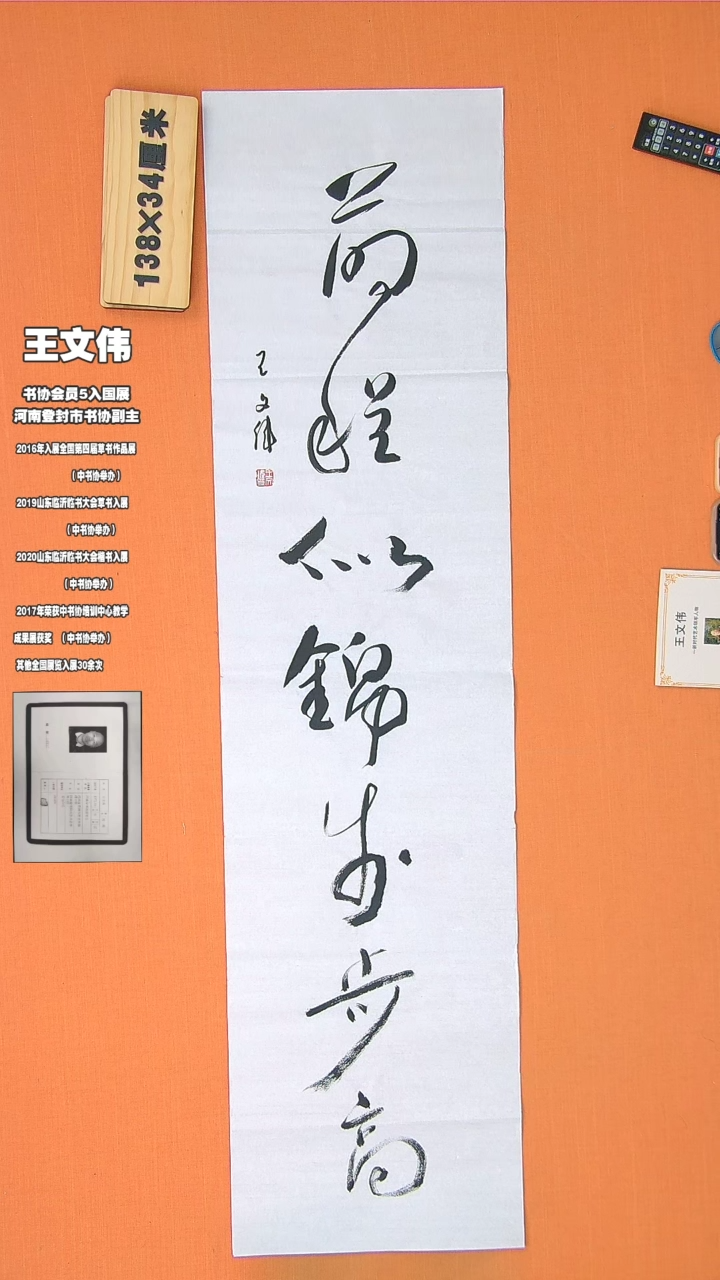 138×34厘米
前程似錦步步高
王文偉
王文伟
书协会员5入国展
河南登封市书协副主
2016年入展全国第四届草书作品展
（中书协举办）
2019山东临沂临书大会草书入展
（中书协举办）
2020山东临沂临书大会楷书入展
（中书协举办）
2017年荣获中书协培训中心教学
成果展获奖 （中书协举办）
其他全国展览入展30余次
王文伟